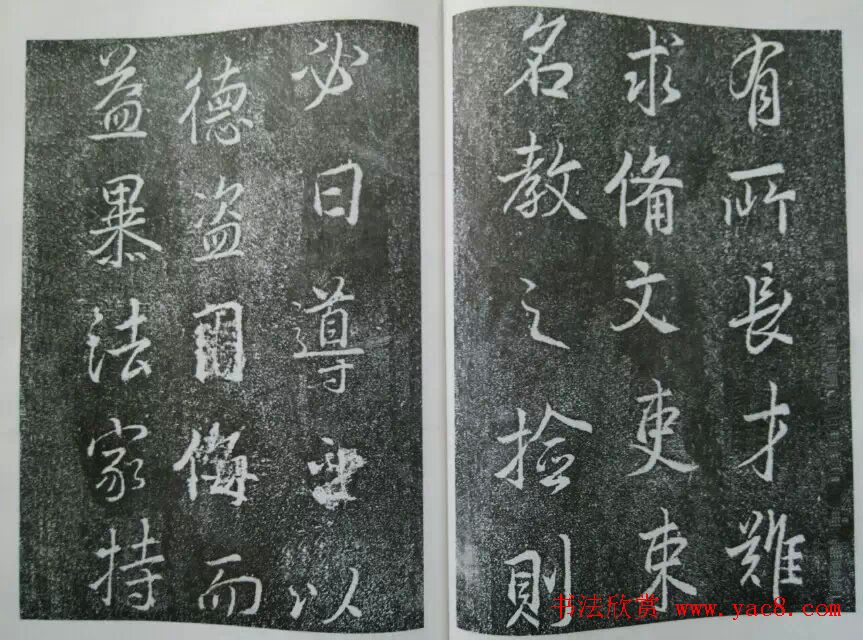 有所長才難
求備文吏束
名教之撿則
必曰導以
德盗因侮而
益暴法家持
书法欣赏 www.yac8.com